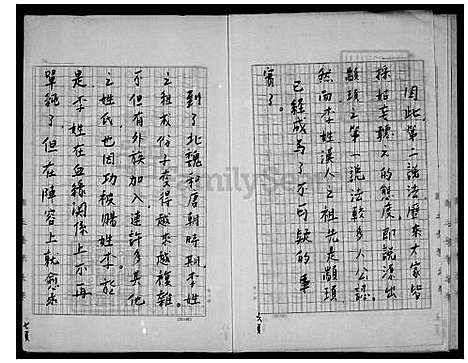 因此，第二說法，歷來大家皆
採姑妄聽之的態度，即說源出
顓頊之第一說法較多人公認。
然而李姓漢人之祖先是顓頊
已經成為了不可疑的事
實了。
到了北魏和唐朝時期，李姓
之組成份子變得越來越複雜。
不但有外族加入連許多其他
之姓氏也因功被賜姓李。於
是李姓在血緣關係上不再
單純了，但在陣容上就愈來
六頁
七頁
FamilySearch